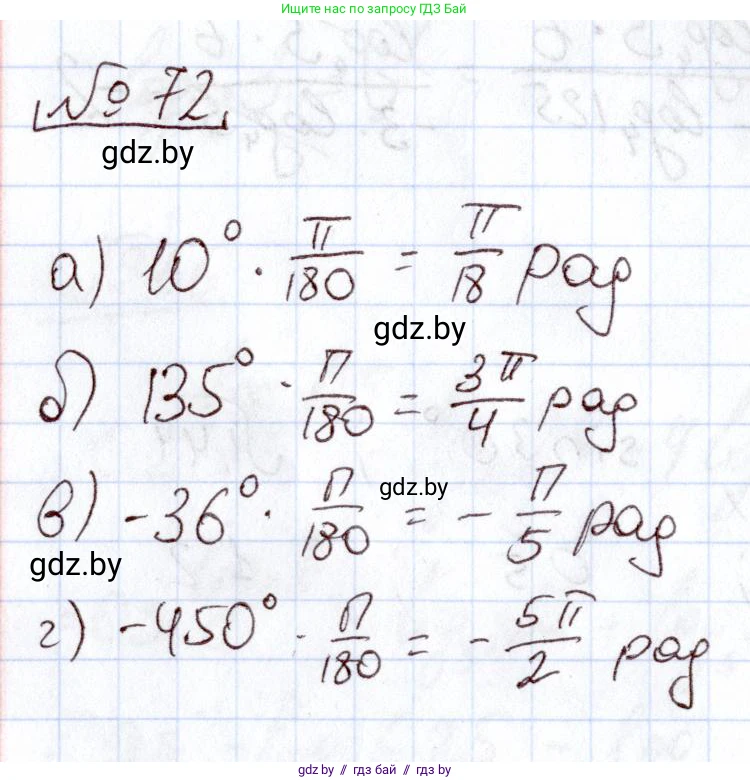 Ищите нас по запросу ГДЗ Бай
№ 72
gdz.by
а) 10° · π/180 = π/18 рад
gdz.by
б) 135° · π/180 = 3π/4 рад
gdz.by
в) -36° · π/180 = - π/5 рад
gdz.by
г) -450° · π/180 = - 5π/2 рад
gdz.by // гдз бай // гдз by